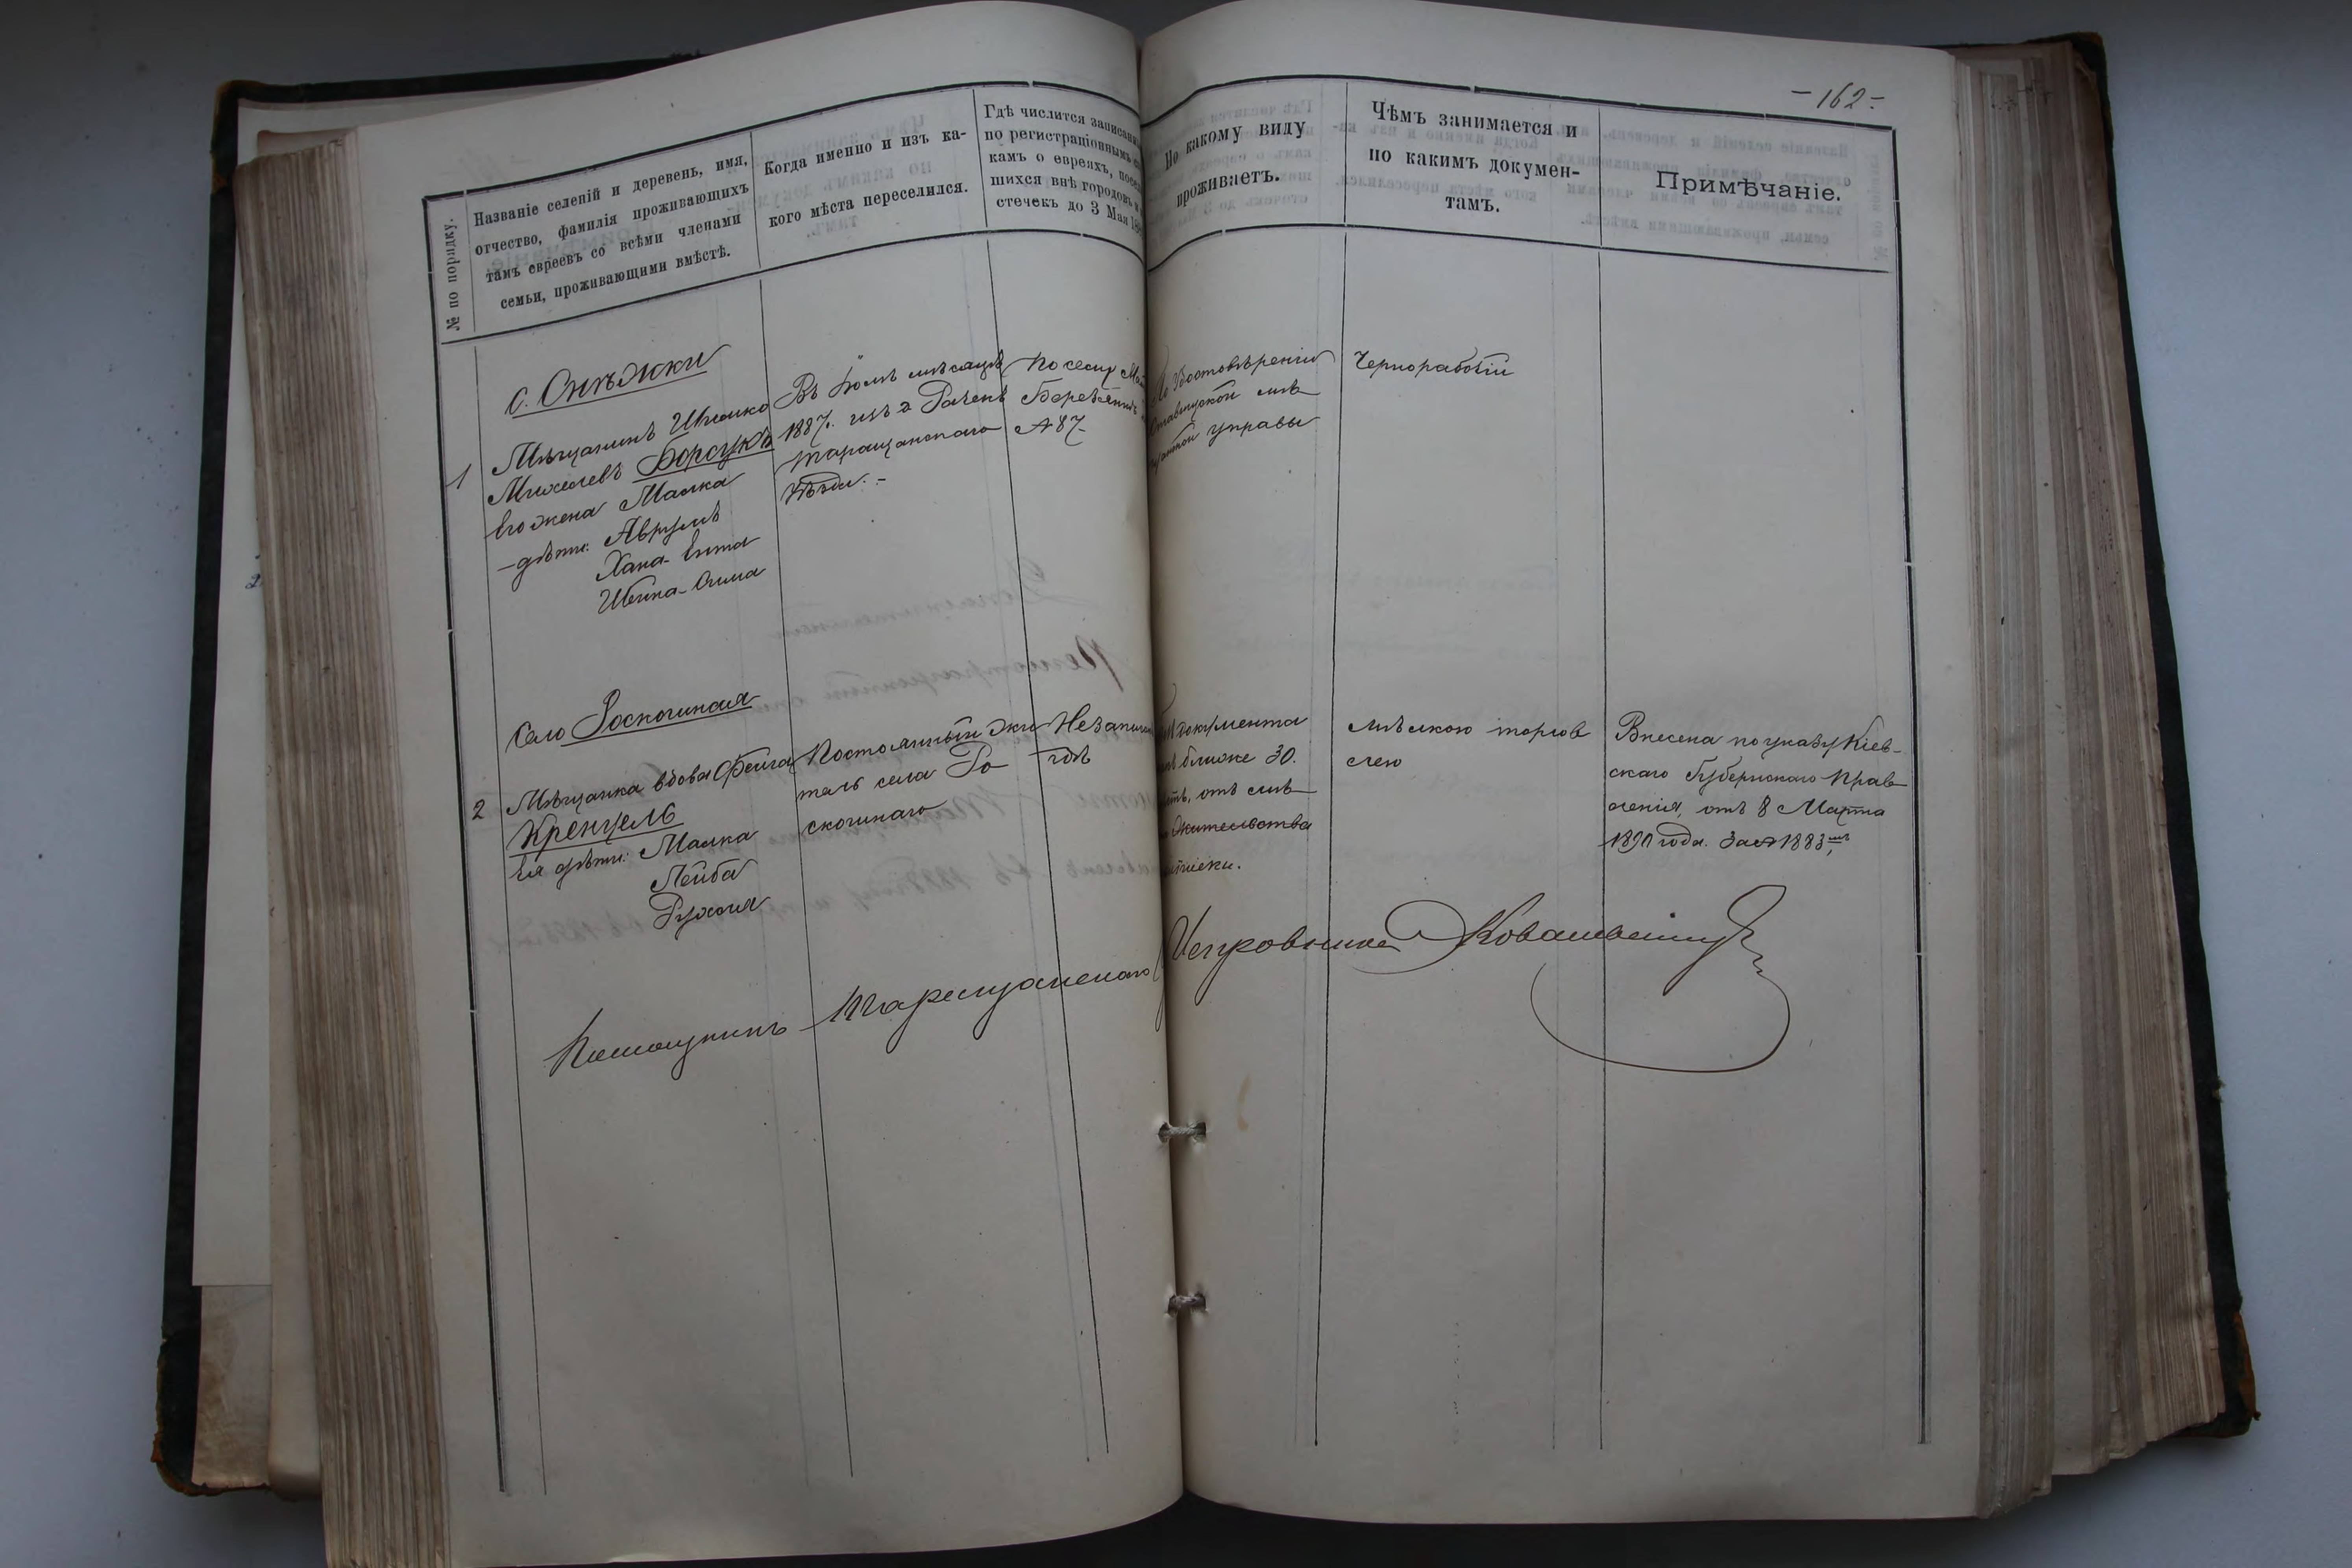 -162-
№ по порядку.
Названіе селеній и деревень, имя,
отчество, фамилія проживающихъ
тамъ евреевъ со всѣми членами
семьи, проживающими вмѣстѣ.
Когда именно и изъ ка-
кого мѣста переселился.
Гдѣ числится записан
по регистраціоннымъ
камъ о евреяхъ, посел
шихся внѣ городовъ и
стечекъ до 3 Мая 188
По какому виду
проживаетъ.
Чѣмъ занимается и
по какимъ докумен-
тамъ.
Примѣчаніе.
с. Снѣжки
1
Мѣщанинъ Ицко
Михелевъ Борсукъ
Его жена Малка
- дѣти: Аврумъ
Хана-Ента
Шейна-Сима
Въ мѣсяцѣ
1887. изъ
Таращанскаго
Уѣзда.-
По селу
№ 87
По Удостовѣренію
Ставищской мѣ
управы
Чернорабочій
Село Роскошная
2
Мѣщанка вдова Фейга
Кренцель
Ея дѣти: Малка
Лейба
Рухля
Постоянный жи
тель села Ро
скошнаго
Незапи
документа
ближе 30.
отъ мѣ
жительства
приписки.
мѣлкою торгов
лею
Внесена по указу Кіев-
скаго Губернскаго Прав
ленія, отъ 8 Марта
1890 года. За № 1883
Помощникъ Таращанскаго Исправника